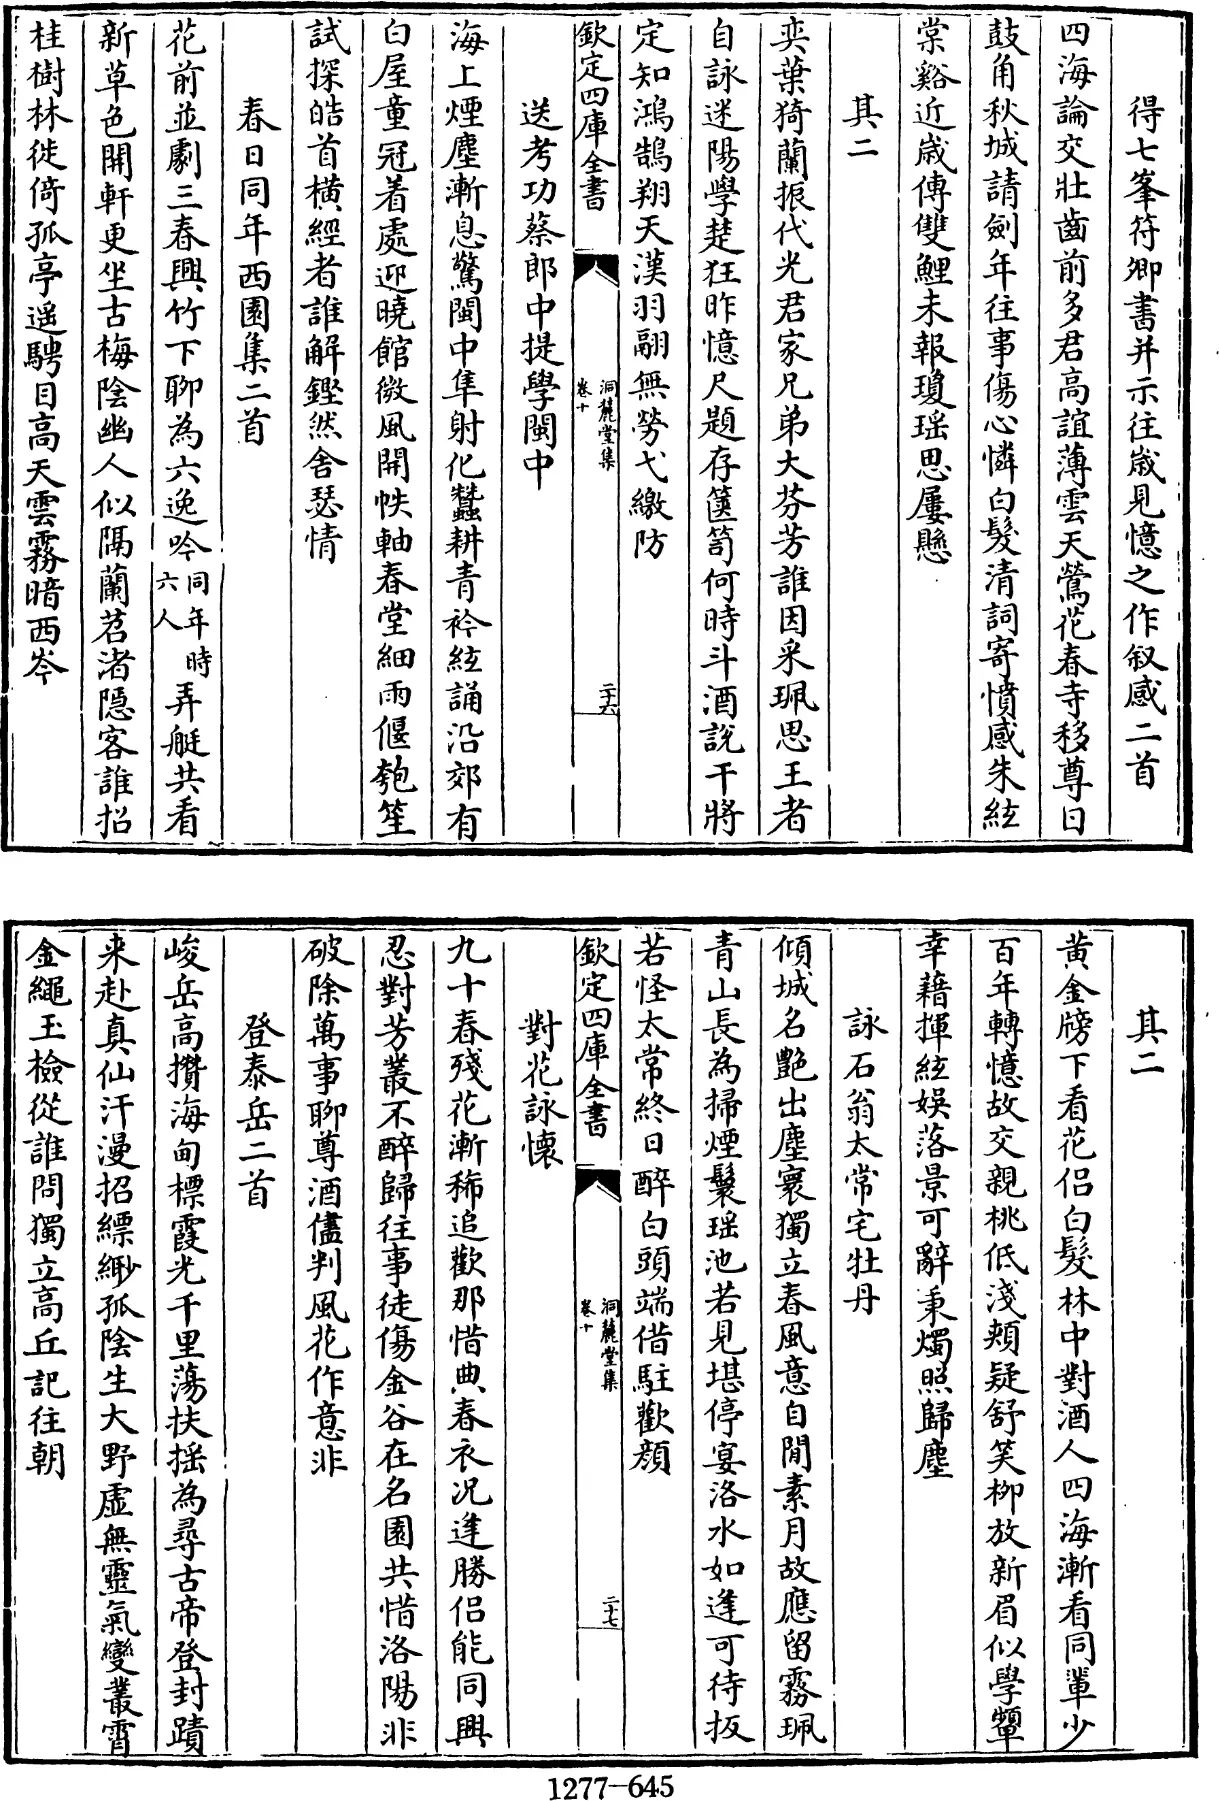 得七峯符卿書并示往嵗見憶之作叙感二首
四海論交壯齒前多君高誼薄雲天鶯花春寺移尊日
鼓角秋城請劍年往事傷心憐白髮清詞寄憤感朱絃
棠谿近嵗傳雙鯉未報瓊瑶思屢懸
其二
奕葉猗蘭振代光君家兄弟大芬芳誰因采珮思王者
自詠迷陽學楚狂昨憶尺題存篋笥何時斗酒説干將
定知鴻鵠翔天漢羽翮無勞弋繳防
欽定四庫全書
洞麓堂集
卷十
二十六
送考功蔡郎中提學閩中
海上煙塵漸息驚閩中隼射化蠶耕青衿絃誦沿郊有
白屋童冠着處迎曉館微風開帙軸春堂細雨偃匏笙
試探皓首横經者誰解鏗然舍瑟情
春日同年西園集二首
花前並劇三春興竹下聊為六逸吟同年時六人弄艇共看
新草色開軒更坐古梅陰幽人似隔蘭苕渚隱客誰招
桂樹林徙倚孤亭遥騁目高天雲霧暗西岑
其二
黄金牓下看花侣白髮林中對酒人四海漸看同輩少
百年轉憶故交親桃低淺頰疑舒笑栁放新眉似學顰
幸藉揮絃娱落景可辭秉燭照歸塵
詠石翁太常宅牡丹
傾城名艷出塵寰獨立春風意自閒素月故應留霧珮
青山長為掃煙鬟瑶池若見堪停宴洛水如逢可待扳
若怪太常終日醉白頭端借駐歡顔
欽定四庫全書
洞麓堂集
卷十
二十七
對花詠懷
九十春殘花漸稀追歡那惜典春衣况逢勝侣能同興
忍對芳叢不醉歸往事徒傷金谷在名園共惜洛陽非
破除萬事聊尊酒儘判風花作意非
登泰岳二首
峻岳高攢海甸標霞光千里蕩扶摇為尋古帝登封蹟
来赴真仙汗漫招縹緲孤陰生大野虚無靈氣變叢霄
金繩玉檢從誰問獨立高丘記往朝
1277—645